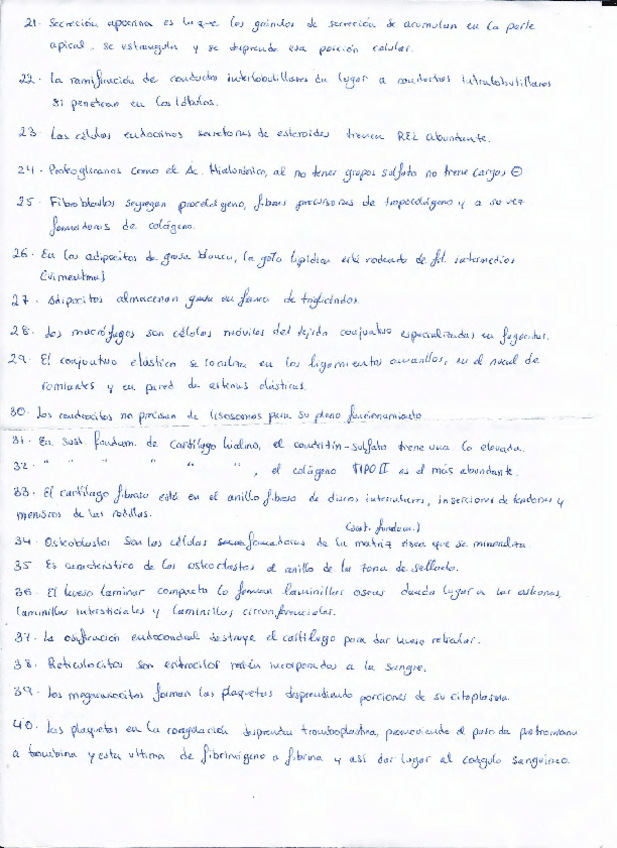 21. Secreción apocrina es la que los gránulos de secreción se acumulan en la parte
apical, se estrangula y se desprende esa porción celular.
22. La ramificación de conductos interlobulillares da lugar a conductos intralobulillares
si penetran en los lóbulos.
23. Las células endocrinas secretoras de esteroides tienen REL abundante.
24. Proteoglicanos como el Ac. Hialorónico, al no tener grupos sulfato no tiene cargas ⊖
25. Fibroblastos segregan procolágeno, fibras precursoras de tropocolágeno y a su vez
formadoras de colágeno.
26. En los adipocitos de grasa blanca, la gota lipídica está rodeada de fil. intermedios
(vimentina)
27. Adipocitos almacenan grasa en forma de triglicéridos.
28. Los macrófagos son células móviles del tejido conjuntivo especializadas en fagocitar.
29. El conjuntivo elástico se localiza en los ligamentos amarillos, en el nucal de
rumiantes y en pared de arterias elásticas.
30. Los condrocitos no precisan de lisosomas para su pleno funcionamiento
31. En sust fundam. de cartílago hialino, el condritín-sulfato tiene una elevada.
32. " " " " " ", el colágeno TIPO II es el más abundante.
33. El cartílago fibroso está en el anillo fibroso de discos intervertebrales, inserciones de tendones y
meniscos de las rodillas.
(sust. fundam.)
34. Osteoblastos son las células formadoras de la matriz ósea que se mineraliza
35. Es característico de los osteoclastos el anillo de la zona de sellado.
36. El hueso laminar compacto lo forman laminillas óseas dando lugar a las osteonas,
laminillas intersticiales y laminillas circunferenciales.
37. La osificación endocondral destruye el cartílago para dar hueso reticular.
38. Reticulocitos son eritrocitos recién incorporados a la sangre.
39. Los megacariocitos forman las plaquetas desprendiendo porciones de su citoplasma.
40. Las plaquetas en la coagulación desprenden tromboplastina, promoviendo el paso de protrombina
a trombina y esta última de fibrinógeno a fibrina y así dar lugar al coágulo sanguíneo.